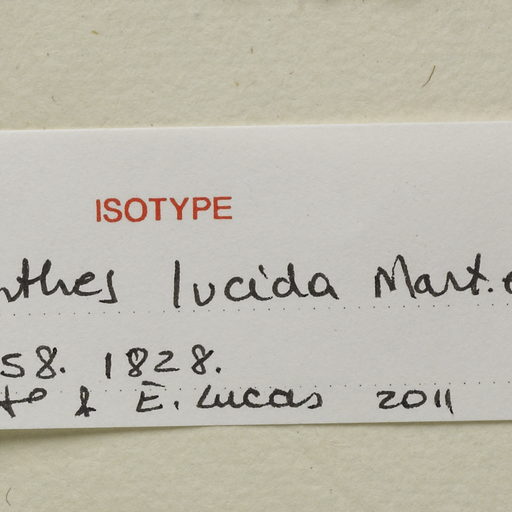 ISOTYPE
nthes lucida Mart.
58. 1828.
to & E. Lucas 2011